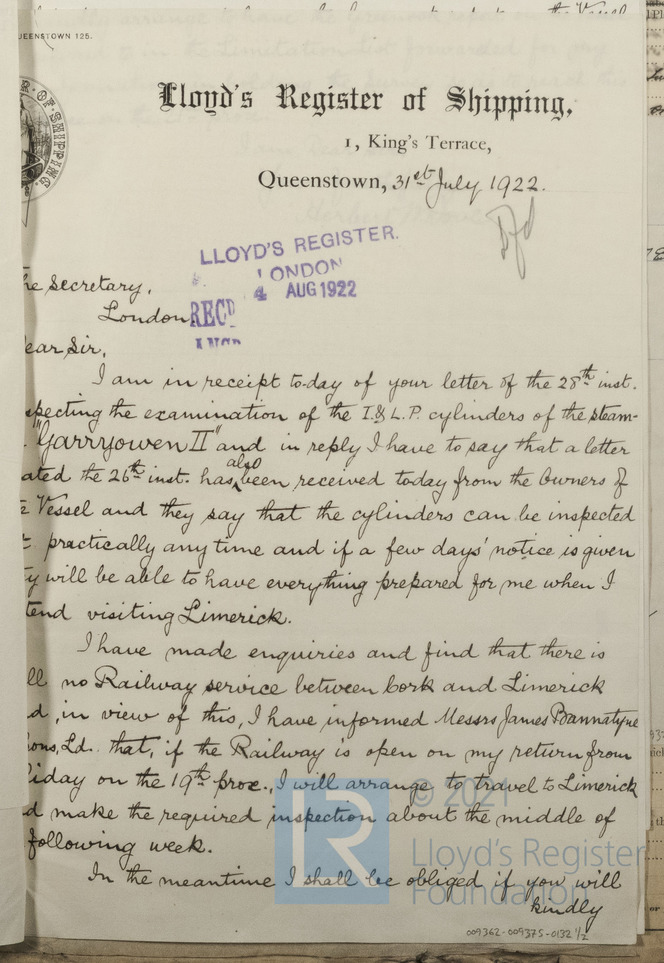 UEENSTOWN 125.
R·OF·SHIPPING.
Lloyd's Register of Shipping,
1, King's Terrace,
Queenstown, 31st July 1922.
LLOYD'S REGISTER.
LONDON
REC'D 4 AUG 1922
he Secretary,
London
ear Sir,
I am in receipt to-day of your letter of the 28th inst.
specting the examination of the I. & L.P. cylinders of the steam-
"Garryowen II" and in reply I have to say that a letter
ated the 26th inst. has also been received today from the Owners of
e Vessel and they say that the cylinders can be inspected
t practically any time and if a few days' notice is given
y will be able to have everything prepared for me when I
tend visiting Limerick.
I have made enquiries and find that there is
ll no Railway service between Cork and Limerick
d, in view of this, I have informed Messrs James Bannatyne
ons, Ld. that, if the Railway is open on my return from
liday on the 19th prox., I will arrange to travel to Limerick
d make the required inspection about the middle of
following week.
In the meantime I shall be obliged if you will
kindly
LR © 2021
Lloyd's Register
Foundation
009362-009375-0132 1/2